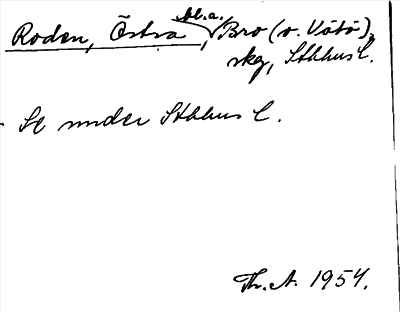 Roden, Östra bl.a., Bro (o. Vätö),
skg, Sthlms l.
Se under Sthlms l.
Th. A. 1954.